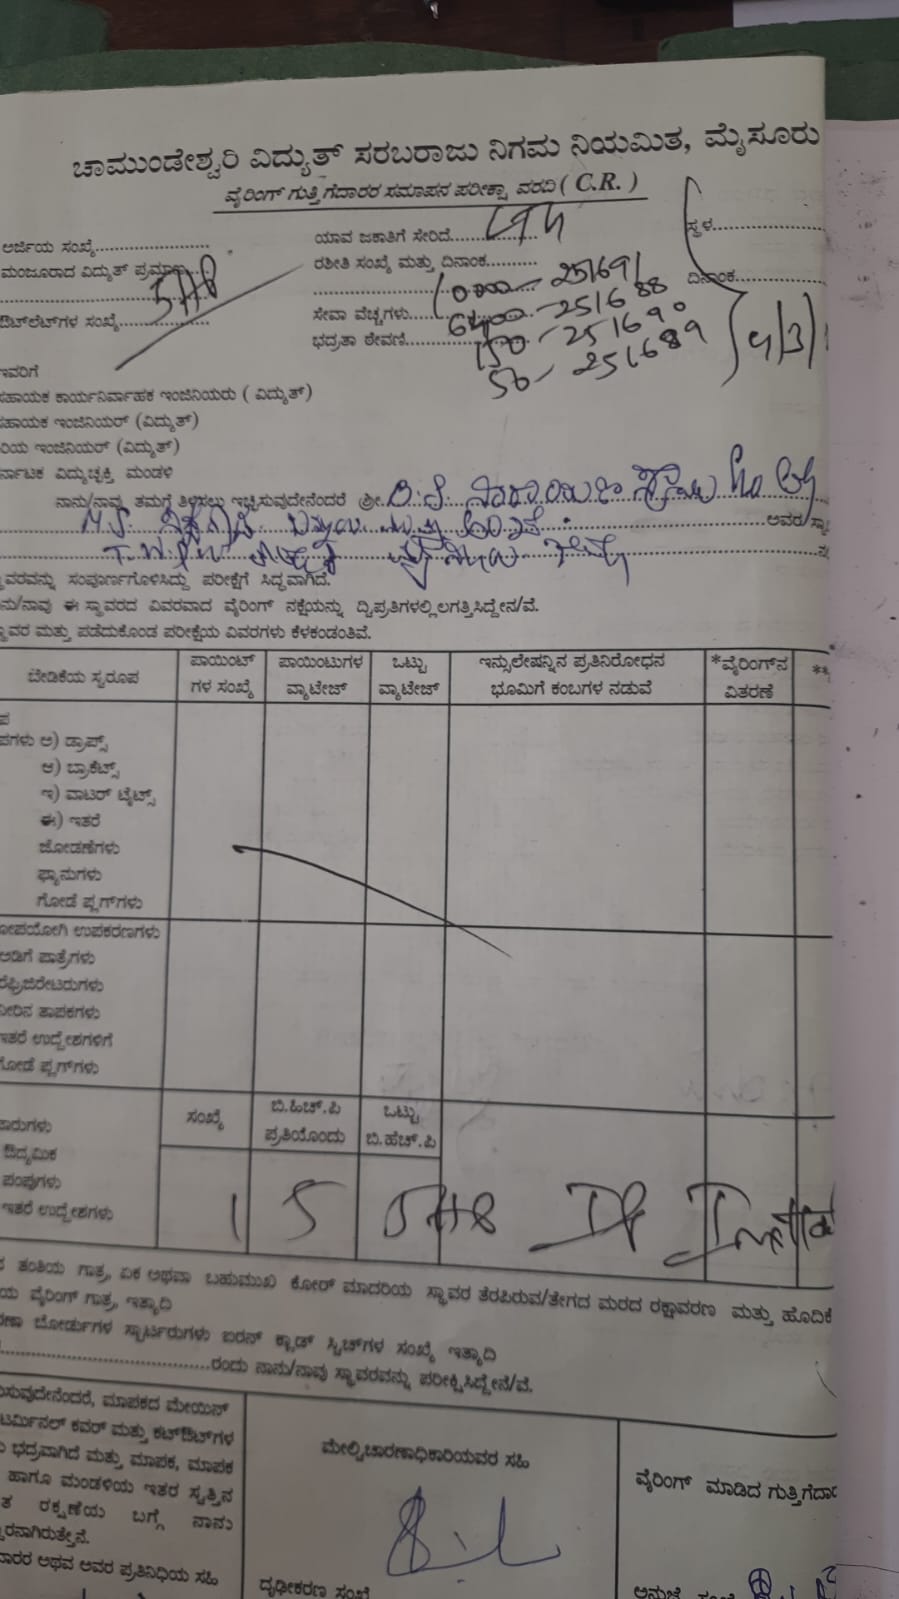 ಚಾಮುಂಡೇಶ್ವರಿ ವಿದ್ಯುತ್ ಸರಬರಾಜು ನಿಗಮ ನಿಯಮಿತ, ಮೈಸೂರು
ವೈರಿಂಗ್ ಗುತ್ತಿಗೆದಾರರ ಸಮಾಪನ ಪರೀಕ್ಷಾ ವರದಿ ( C.R. )
ಅರ್ಜಿಯ ಸಂಖ್ಯೆ
ಮಂಜೂರಾದ ವಿದ್ಯುತ್ ಪ್ರಮಾಣ 5HP
ಔಟ್‌ಲೆಟ್‌ಗಳ ಸಂಖ್ಯೆ
ಯಾವ ಜಕಾತಿಗೆ ಸೇರಿದೆ
ರಶೀತಿ ಸಂಖ್ಯೆ ಮತ್ತು ದಿನಾಂಕ
10000 - 251691
ಸೇವಾ ವೆಚ್ಚಗಳು 6400 - 251688
ಭದ್ರತಾ ಠೇವಣಿ 150 - 251690
50 - 251689
ಸ್ಥಳ
ದಿನಾಂಕ
ಇವರಿಗೆ
ಸಹಾಯಕ ಕಾರ್ಯನಿರ್ವಾಹಕ ಇಂಜಿನಿಯರು ( ವಿದ್ಯುತ್)
ಸಹಾಯಕ ಇಂಜಿನಿಯರ್ (ವಿದ್ಯುತ್)
ರಿಯ ಇಂಜಿನಿಯರ್ (ವಿದ್ಯುತ್)
ರ್ನಾಟಕ ವಿದ್ಯುಚ್ಛಕ್ತಿ ಮಂಡಳಿ
ನಾನು/ನಾವು ತಮಗೆ ತಿಳಿಸಲು ಇಚ್ಛಿಸುವುದೇನೆಂದರೆ ಶ್ರೀ
ಅವರ ಸ್ಥಾ
ವರವನ್ನು ಸಂಪೂರ್ಣಗೊಳಿಸಿದ್ದು ಪರೀಕ್ಷೆಗೆ ಸಿದ್ಧವಾಗಿದೆ.
ನು/ನಾವು ಈ ಸ್ಥಾವರದ ವಿವರವಾದ ವೈರಿಂಗ್ ನಕ್ಷೆಯನ್ನು ದ್ವಿಪ್ರತಿಗಳಲ್ಲಿ ಲಗತ್ತಿಸಿದ್ದೇನ/ವೆ.
ಸ್ಥಾವರ ಮತ್ತು ಪಡೆದುಕೊಂಡ ಪರೀಕ್ಷೆಯ ವಿವರಗಳು ಕೆಳಕಂಡಂತಿವೆ.
ಬೇಡಿಕೆಯ ಸ್ವರೂಪ
ಪಾಯಿಂಟ್ ಗಳ ಸಂಖ್ಯೆ
ಪಾಯಿಂಟುಗಳ ವ್ಯಾಟೇಜ್
ಒಟ್ಟು ವ್ಯಾಟೇಜ್
ಇನ್ಸುಲೇಷನ್ನಿನ ಪ್ರತಿನಿರೋಧನ ಭೂಮಿಗೆ ಕಂಬಗಳ ನಡುವೆ
*ವೈರಿಂಗ್‌ನ ವಿತರಣೆ
**
ಪಗಳು ಅ) ಡ್ರಾಪ್ಸ್
ಆ) ಬ್ರಾಕೆಟ್ಸ್
ಇ) ವಾಟರ್ ಟೈಟ್ಸ್
ಈ) ಇತರೆ
ಜೋಡಣೆಗಳು
ಫ್ಯಾನುಗಳು
ಗೋಡೆ ಪ್ಲಗ್‌ಗಳು
ೋಪಯೋಗಿ ಉಪಕರಣಗಳು
ಅಡಿಗೆ ಪಾತ್ರೆಗಳು
ರೆಫ್ರಿಜಿರೇಟರುಗಳು
ನೀರಿನ ತಾಪಕಗಳು
ಇತರೆ ಉದ್ದೇಶಗಳಿಗೆ
ಗೋಡೆ ಪ್ಲಗ್‌ಗಳು
ಸಂಖ್ಯೆ
ಬಿ.ಹಿಚ್.ಪಿ ಪ್ರತಿಯೊಂದು
ಒಟ್ಟು ಬಿ.ಹೆಚ್.ಪಿ
ಾರುಗಳು
ಔದ್ಯಮಿಕ
ಪಂಪುಗಳು
ಇತರೆ ಉದ್ದೇಶಗಳು
1 5 5HP IP
ತಂತಿಯ ಗಾತ್ರ, ಏಕ ಅಥವಾ ಬಹುಮುಖ ಕೋರ್ ಮಾದರಿಯ ಸ್ಥಾವರ ತೆರಪಿರುವ/ತೇಗದ ಮರದ ರಕ್ಷಾವರಣ ಮತ್ತು ಹೊದಿಕೆ
ಯ ವೈರಿಂಗ್ ಗಾತ್ರ, ಇತ್ಯಾದಿ
ರಣಾ ಬೋರ್ಡುಗಳ ಸ್ಟಾರ್ಟರುಗಳು ಐರನ್ ಕ್ಲಾಡ್ ಸ್ವಿಚ್‌ಗಳ ಸಂಖ್ಯೆ ಇತ್ಯಾದಿ
ರಂದು ನಾನು/ನಾವು ಸ್ಥಾವರವನ್ನು ಪರೀಕ್ಷಿಸಿದ್ದೇನೆ/ವೆ.
ಸುವುದೇನೆಂದರೆ, ಮಾಪಕದ ಮೇಯಿನ್
ಟರ್ಮಿನಲ್ ಕವರ್ ಮತ್ತು ಕಟ್‌ಔಟ್‌ಗಳ
ಭದ್ರವಾಗಿದೆ ಮತ್ತು ಮಾಪಕ, ಮಾಪಕ
ಹಾಗೂ ಮಂಡಳಿಯ ಇತರ ಸ್ವತ್ತಿನ
ತ ರಕ್ಷಣೆಯ ಬಗ್ಗೆ ನಾನು
ರನಾಗಿರುತ್ತೇನೆ.
ದಾರರ ಅಥವ ಅವರ ಪ್ರತಿನಿಧಿಯ ಸಹಿ
ಮೇಲ್ವಿಚಾರಣಾಧಿಕಾರಿಯವರ ಸಹಿ
ದೃಢೀಕರಣ ಸಂಖ್ಯೆ
ವೈರಿಂಗ್ ಮಾಡಿದ ಗುತ್ತಿಗೆದಾರ